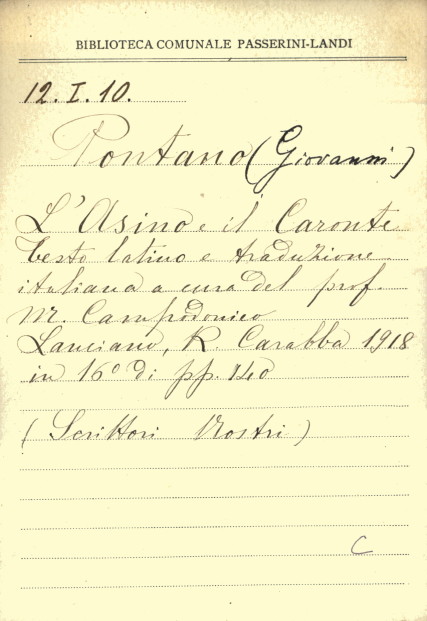 BIBLIOTECA COMUNALE PASSERINI-LANDI
12. I. 10.
Pontano (Giovanni)
L'Asino e il Caronte
testo latino e traduzione
italiana a cura del prof.
M. Campodonico
Lanciano, R. Carabba 1918
in 16º di pp. 140
(Scrittori Nostri)
C